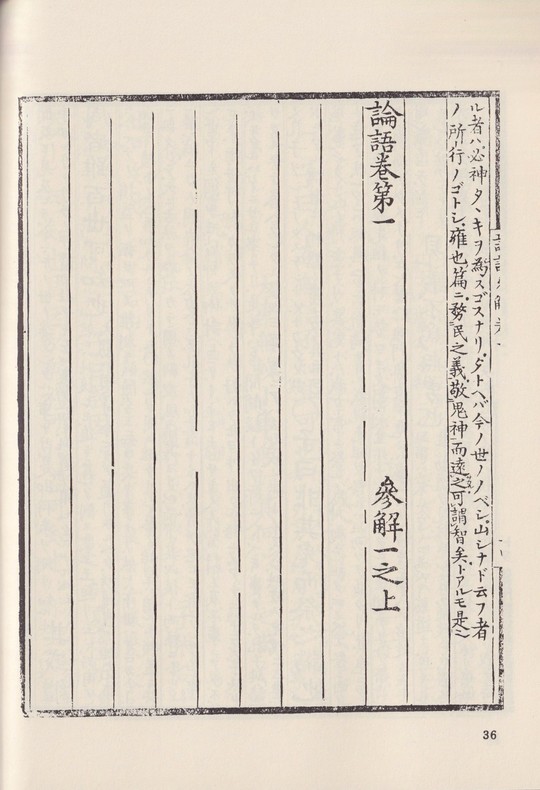 ル者ハ必神タヽキヲ爲スゴスナリ。タトヘバ今ノ世ノノベシ山シナド云フ者
ノ所行ノゴトシ。雍也篇ニ務民之義敬鬼神而遠之可謂智矣。トアルモ是
論語卷第一
參解一之上
36